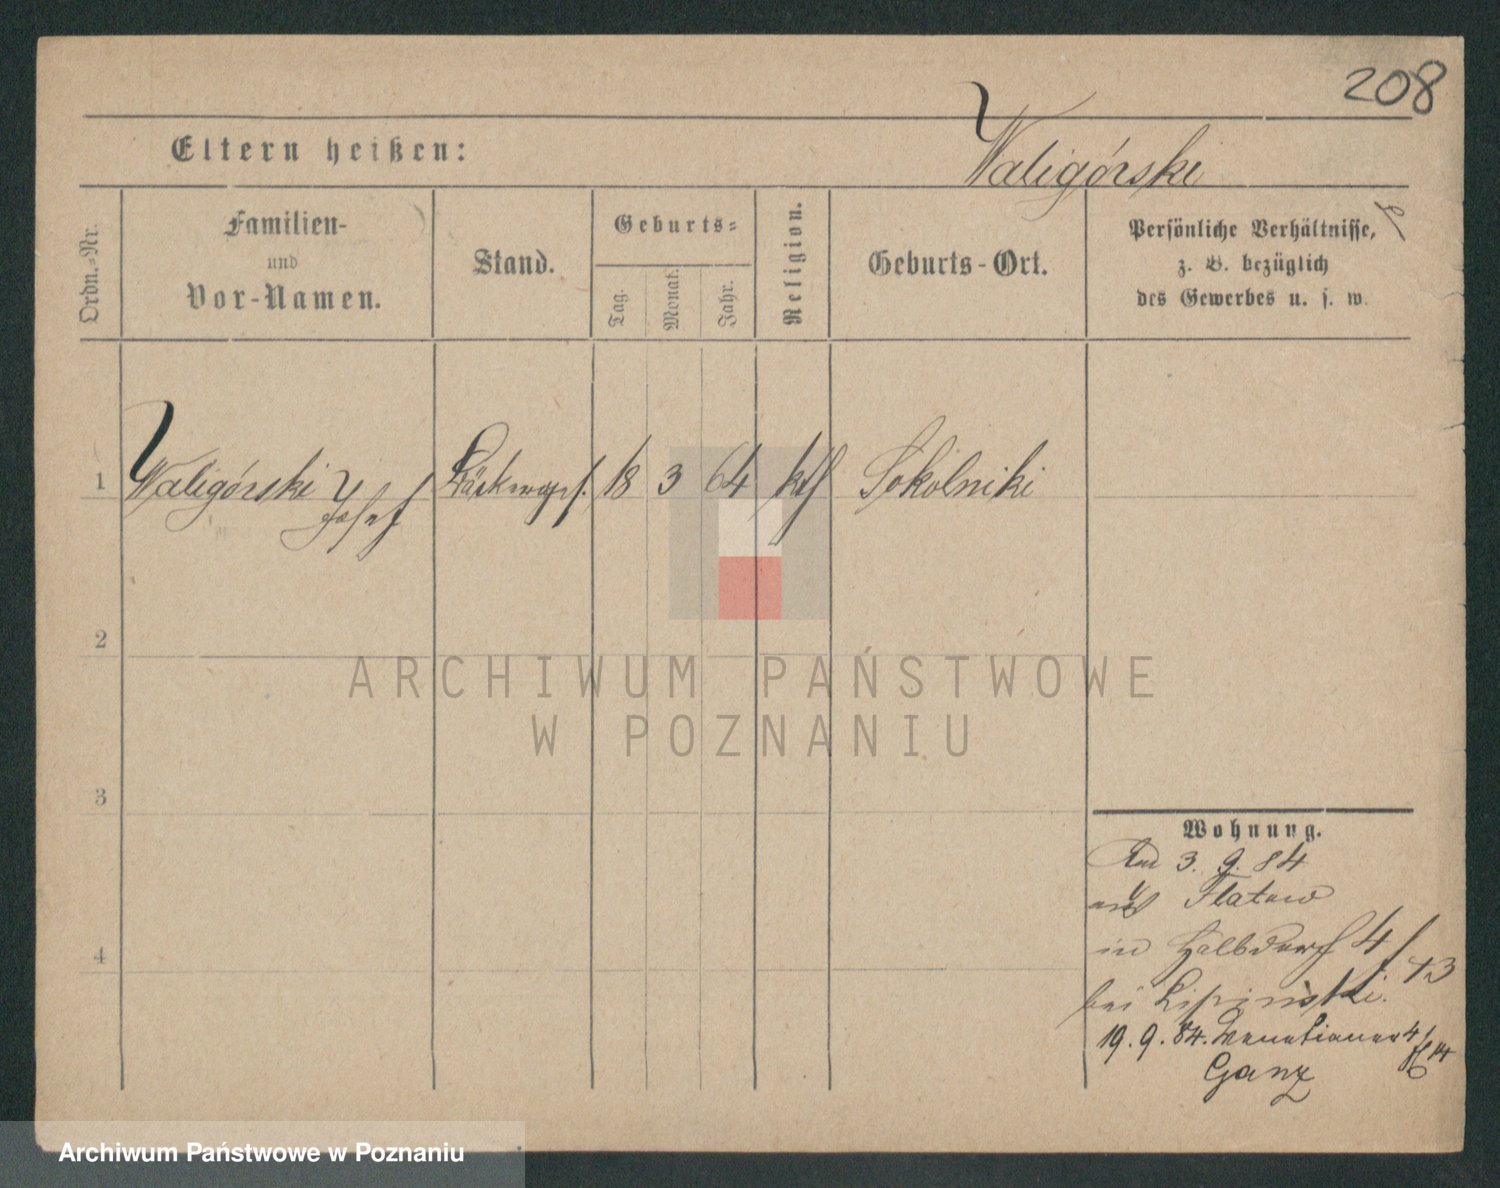 208
Eltern heißen:
Waligórski
Ordn.=Nr.
Familien-
und
Vor-Namen.
Stand.
Geburts=
Tag.
Monat.
Jahr.
Religion.
Geburts-Ort.
Persönliche Verhältnisse,
z. B. bezüglich
des Gewerbes u. s. w.
1 Waligórski Josef 18 3 64 kth Sokolniki
2
3
4
Wohnung.
3. 9. 84
aus Flatow
in Halbdorf 4/
bei Lipinski.
19. 9. 84. Venetianer
Ganz
ARCHIWUM PAŃSTWOWE
W POZNANIU
Archiwum Państwowe w Poznaniu